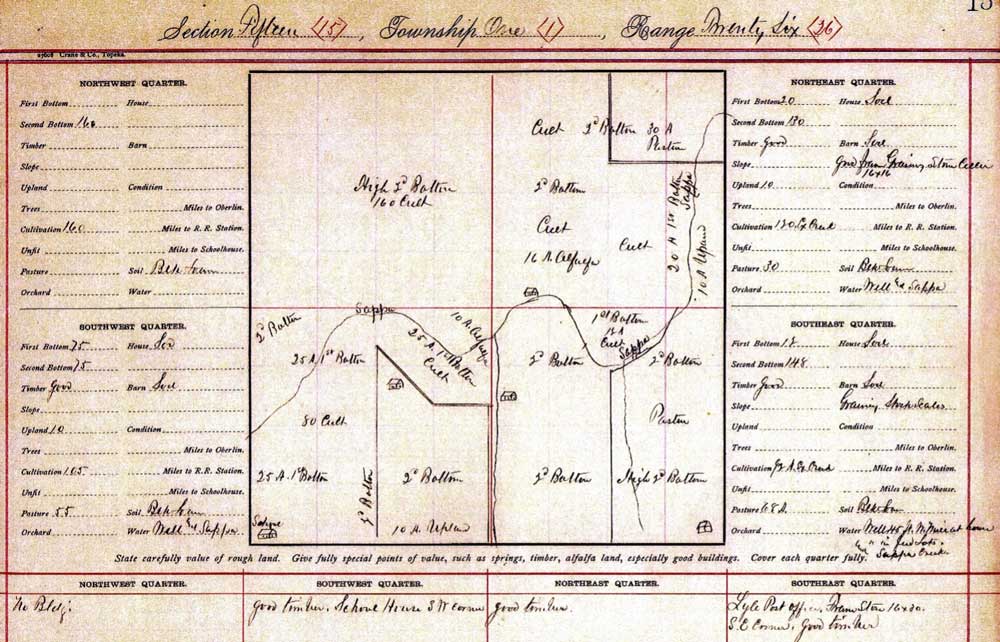 15
Section Fifteen (15), Township One (1), Range Twenty Six (26)
27608 Crane & Co., Topeka.
NORTHWEST QUARTER.
First Bottom House
Second Bottom 160
Timber Barn
Slope
Upland Condition
Trees Miles to Oberlin.
Cultivation 160 Miles to R. R. Station.
Unfit Miles to Schoolhouse.
Pasture Soil Blk Loam
Orchard Water
SOUTHWEST QUARTER.
First Bottom 75 House Sod
Second Bottom 75
Timber Good Barn Sod
Slope
Upland 10 Condition
Trees Miles to Oberlin.
Cultivation 105 Miles to R. R. Station.
Unfit Miles to Schoolhouse.
Pasture 55 Soil Blk Loam
Orchard Water Well & Sappa
High 2d Bottom
160 Cult
Cult 2d Bottom 30 A
Pasture
2d Bottom
Cult
Cult
16 A. Alfalfa
20 A 1st Bottom
Sappa
10 A Upland
2d Bottom
Sappa
25 A 1st Bottom
25 A 1st Bottom
Cult
10 A. Alfalfa
80 Cult
25 A. 1st Bottom
2d Bottom
2d Bottom
10 A Upland
School
1st Bottom
Cult
Sappa
2d Bottom
2d Bottom
Pasture
2d Bottom
High 2d Bottom
NORTHEAST QUARTER.
First Bottom 20 House Sod
Second Bottom 130
Timber Good Barn Sod
Slope Good Frame Granary Stone Celler
16x16
Upland 10 Condition
Trees Miles to Oberlin.
Cultivation 130 Miles to R. R. Station.
Unfit Miles to Schoolhouse.
Pasture 30 Soil Blk Loam
Orchard Water Well & Sappa
SOUTHEAST QUARTER.
First Bottom 12 House Sod
Second Bottom 148
Timber Good Barn Sod
Slope Granary Stock Scales
Upland Condition
Trees Miles to Oberlin.
Cultivation 92 A. Miles to R. R. Station.
Unfit Miles to Schoolhouse.
Pasture 68 A Soil Blk Loam
Orchard Water Well 45 ft. at house
" " in feed lots.
Sappa Creek
State carefully value of rough land. Give fully special points of value, such as springs, timber, alfalfa land, especially good buildings. Cover each quarter fully.
NORTHWEST QUARTER. SOUTHWEST QUARTER. NORTHEAST QUARTER. SOUTHEAST QUARTER.
No Bldg. Good timber. School House S W Corner good timber. Lyle Post Office, Frame Store 16x30.
S. E Corner. Good timber